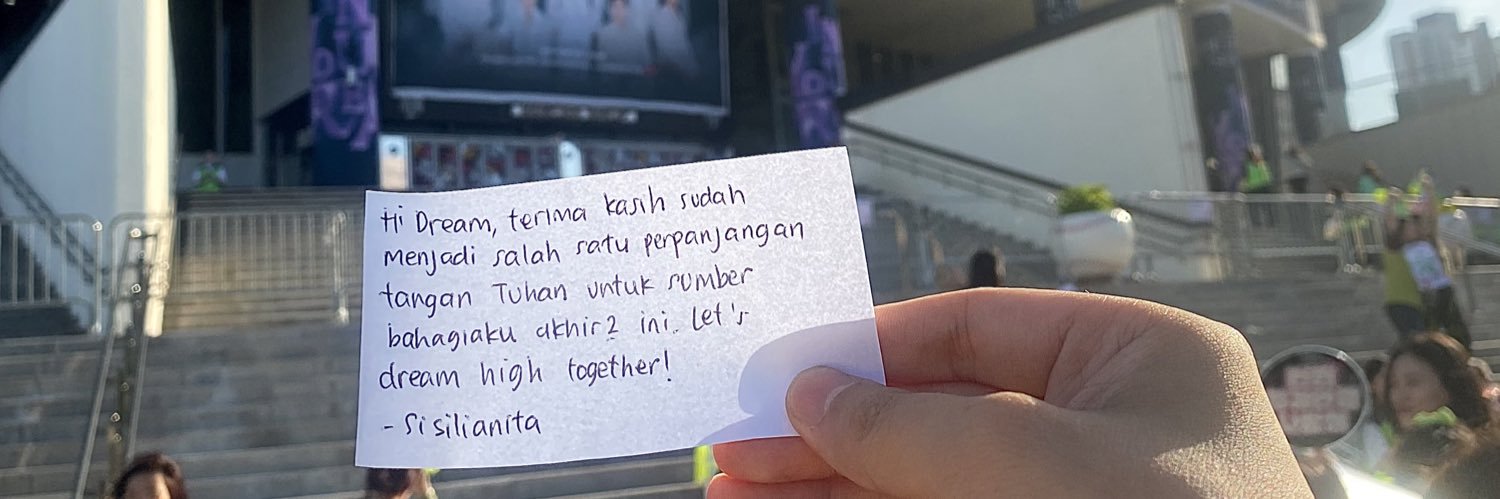 Hi Dream, terima kasih sudah
menjadi salah satu perpanjangan
tangan Tuhan untuk sumber
bahagiaku akhir2 ini. Let's
dream high together!
- Sisilianita